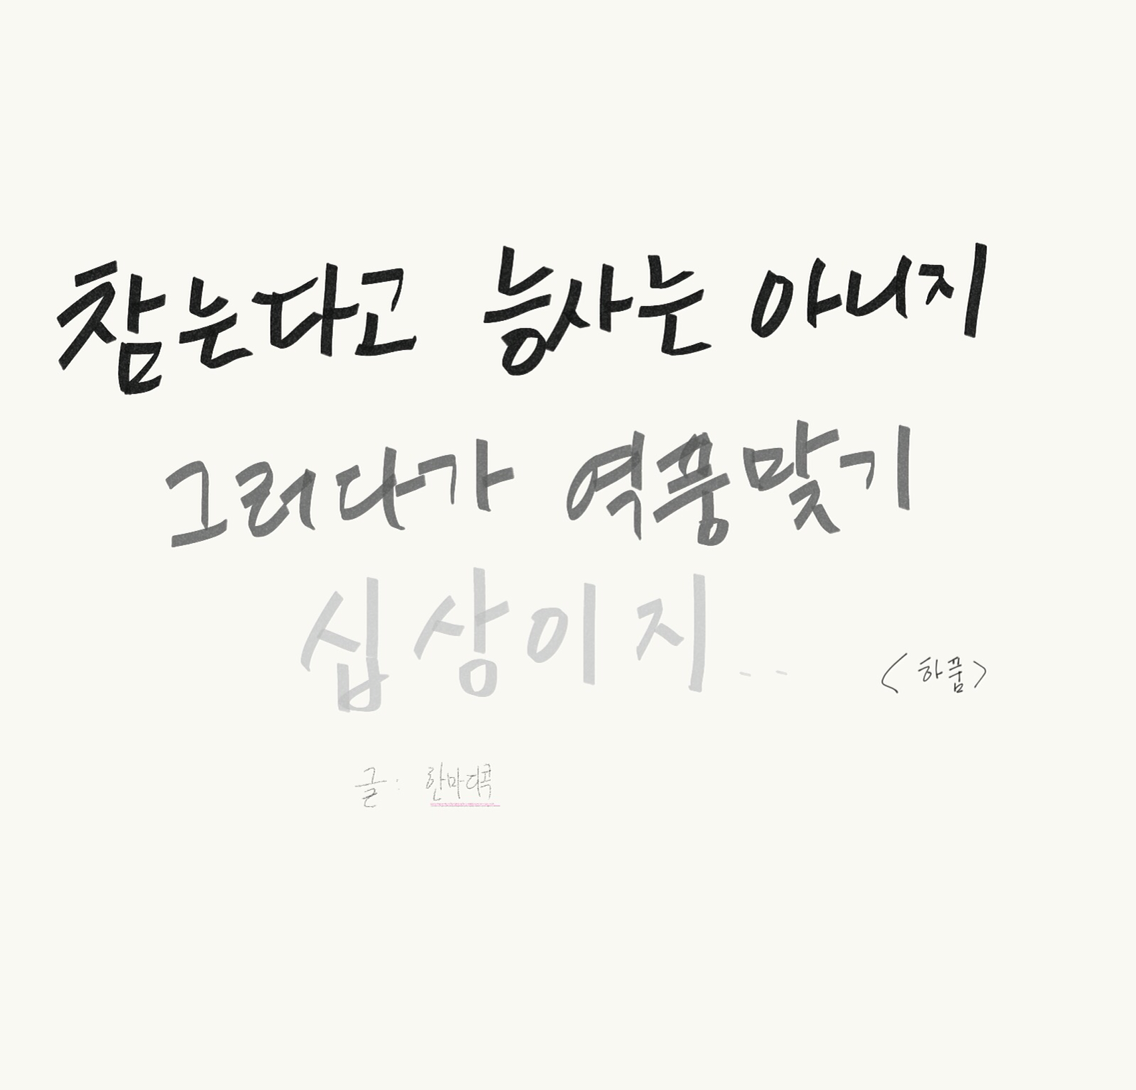 참는다고 능사는 아니지
그러다가 역풍맞기
십상이지..
<하품>
글: 한마디콕